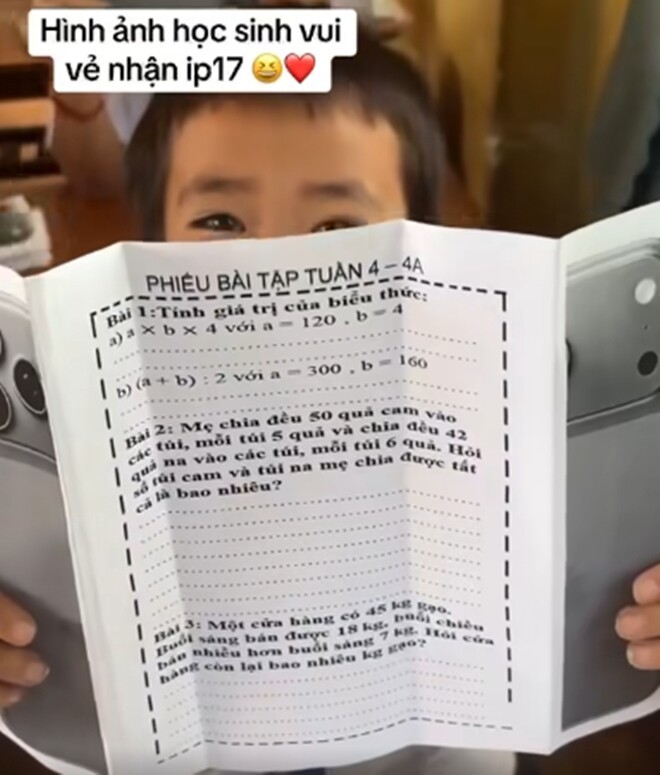 Hình ảnh học sinh vui
vẻ nhận ip17 😆❤️
PHIẾU BÀI TẬP TUẦN 4 – 4A
Bài 1:Tính giá trị của biểu thức:
a) a × b × 4 với a = 120 , b = 4
b) (a + b) : 2 với a = 300 , b = 160
Bài 2: Mẹ chia đều 50 quả cam vào
các túi, mỗi túi 5 quả và chia đều 42
quả na vào các túi, mỗi túi 6 quả. Hỏi
số túi cam và túi na mẹ chia được tất
cả là bao nhiêu?
Bài 3: Một cửa hàng có 45 kg gạo.
Buổi sáng bán được 18 kg, buổi chiều
bán nhiều hơn buổi sáng 7 kg. Hỏi cửa
hàng còn lại bao nhiêu kg gạo?